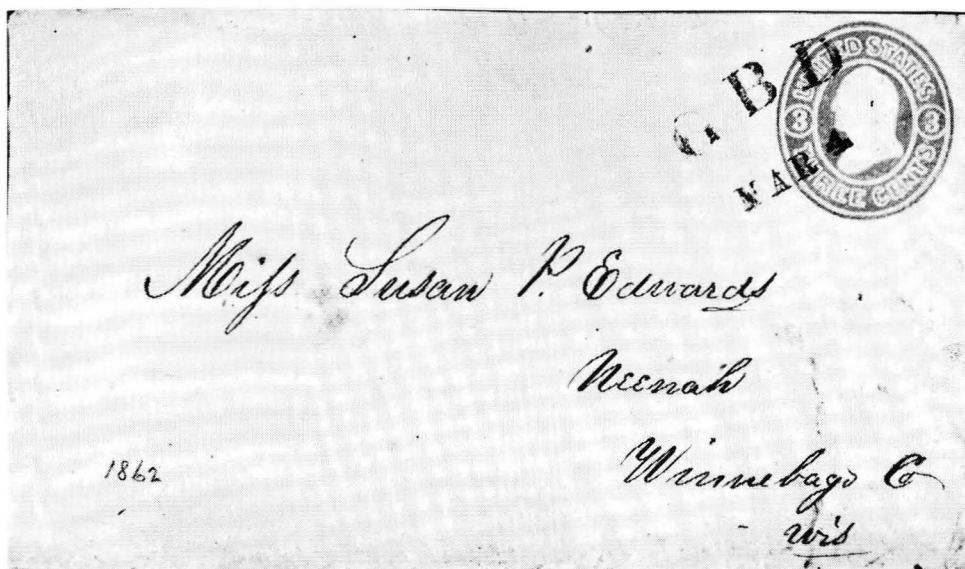 C. B D
MAR 4
UNITED STATES
3 3
THREE CENTS
Miss Susan P. Edwards
Neenah
Winnebago Co
Wis
1862